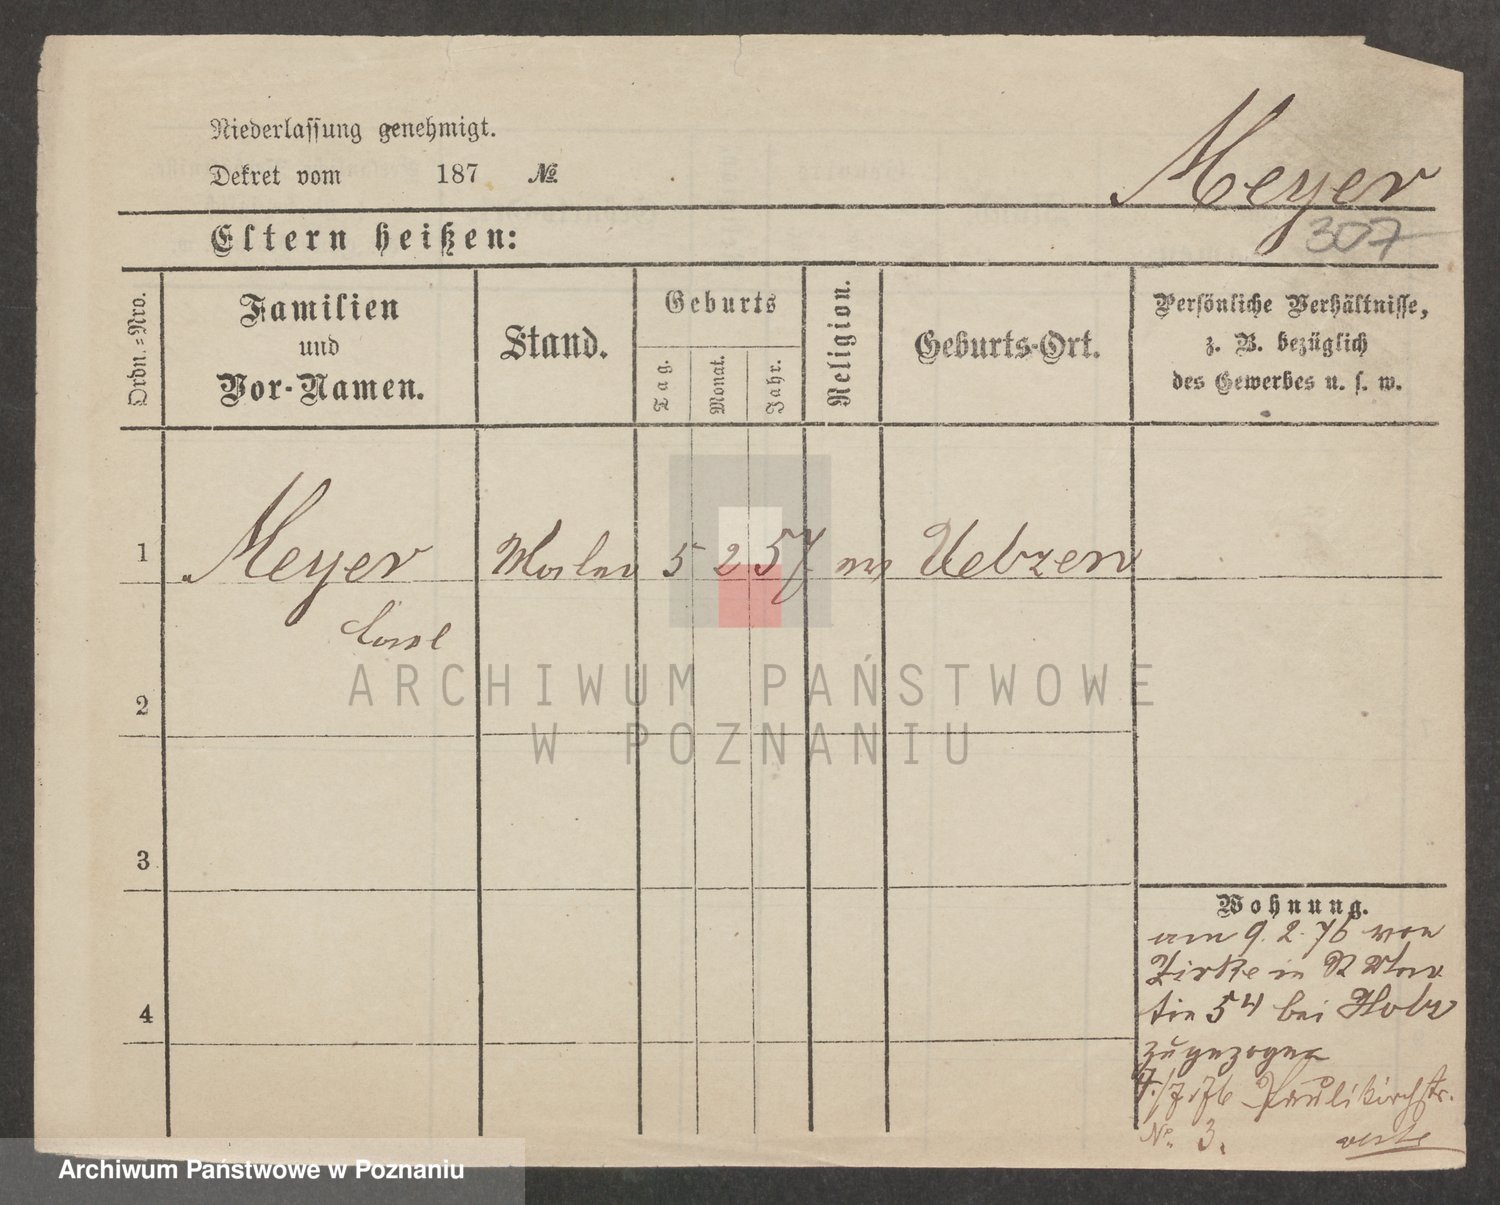 Niederlassung genehmigt.
Dekret vom 187 №
Meyer
307
Eltern heißen:
Ordn.=Nro.
Familien
und
Vor-Namen.
Stand.
Geburts
Tag.
Monat.
Jahr.
Religion.
Geburts-Ort.
Persönliche Verhältnisse,
z. B. bezüglich
des Gewerbes u. s. w.
1 Meyer Maler 5 2 57 ev Uebzen
Carl
2
3
4
Wohnung.
am 9. 2. 76 von
Zirke in St Mar
tin 54 bei
zugezogen
/7. 76 Paulikirchstr.
No. 3. verte
ARCHIWUM PAŃSTWOWE
W POZNANIU
Archiwum Państwowe w Poznaniu